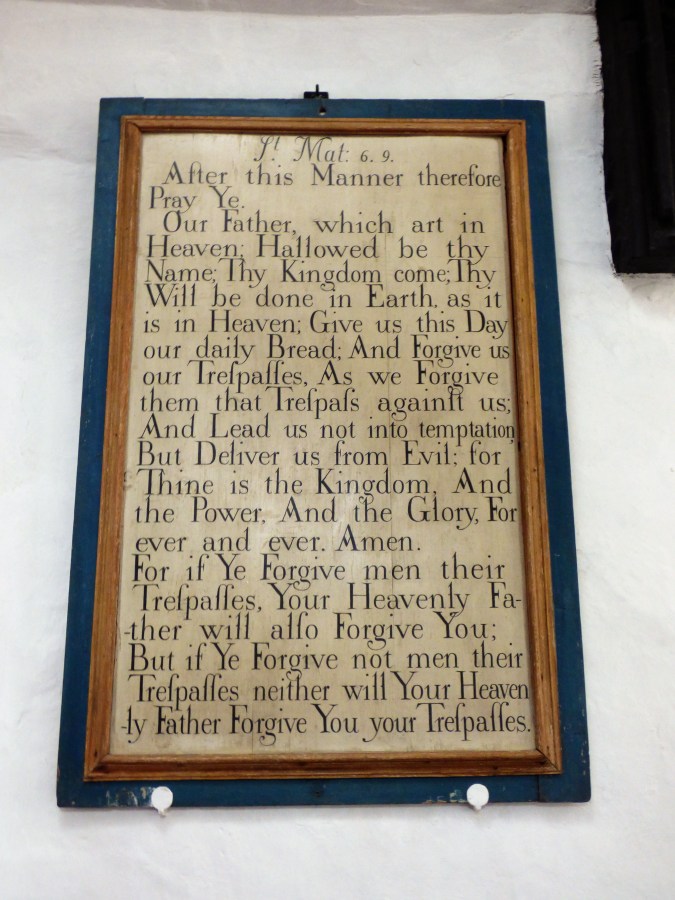 St Mat: 6. 9.
After this Manner therefore
Pray Ye.
Our Father, which art in
Heaven; Hallowed be thy
Name; Thy Kingdom come; Thy
Will be done in Earth, as it
is in Heaven; Give us this Day
our daily Bread; And Forgive us
our Treſpaſſes, As we Forgive
them that Treſpaſs againſt us;
And Lead us not into temptation
But Deliver us from Evil; for
Thine is the Kingdom, And
the Power, And the Glory, For
ever and ever. Amen.
For if Ye Forgive men their
Treſpaſſes, Your Heavenly Fa-
-ther will alſo Forgive You;
But if Ye Forgive not men their
Treſpaſſes neither will Your Heaven
-ly Father Forgive You your Treſpaſſes.